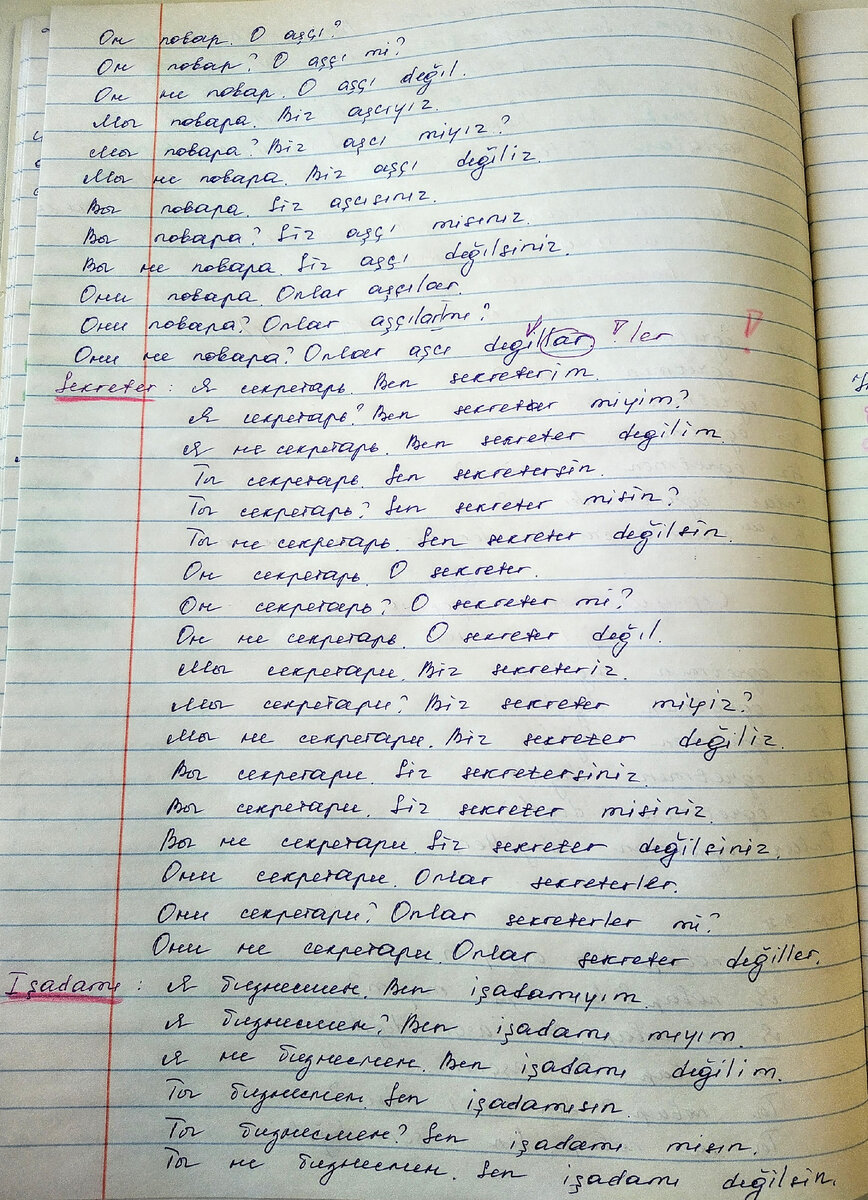 Он повар. O aşçı?
Он повар? O aşçı mi?
Он не повар. O aşçı değil.
Мы повара. Biz aşcıyız.
Мы повара? Biz aşcı miyiz?
Мы не повара. Biz aşçı değiliz.
Вы повара. Siz aşcısınız.
Вы повара? Siz aşçı misınız.
Вы не повара. Siz aşçı değilsiniz.
Они повара. Onlar aşçılar.
Они повара? Onlar aşçılarmı?
Они не повара? Onlar aşcı değillar ler
Sekreter: Я секретарь. Ben sekreterim.
Я секретарь? Ben sekreter miyim?
Я не секретарь. Ben sekreter degilim.
Ты секретарь. Sen sekretersin.
Ты секретарь? Sen sekreter misin?
Ты не секретарь. Sen sekreter değilsin.
Он секретарь. O sekreter.
Он секретарь? O sekreter mi?
Он не секретарь. O sekreter değil.
Мы секретари. Biz sekreteriz.
Мы секретари? Biz sekreter miyiz?
Мы не секретари. Biz sekreter değiliz.
Вы секретари. Siz sekretersiniz.
Вы секретари. Siz sekreter misiniz.
Вы не секретари. Siz sekreter değilsiniz.
Они секретари. Onlar sekreterler.
Они секретари? Onlar sekreterler mi?
Они не секретари. Onlar sekreter değiller.
Işadamı: Я бизнесмен. Ben işadamıyım.
Я бизнесмен? Ben işadamı mıyım.
Я не бизнесмен. Ben işadamı değilim.
Ты бизнесмен. Sen işadamısın.
Ты бизнесмен? Sen işadamı misın.
Ты не бизнесмен. Sen işadamı değilsin.